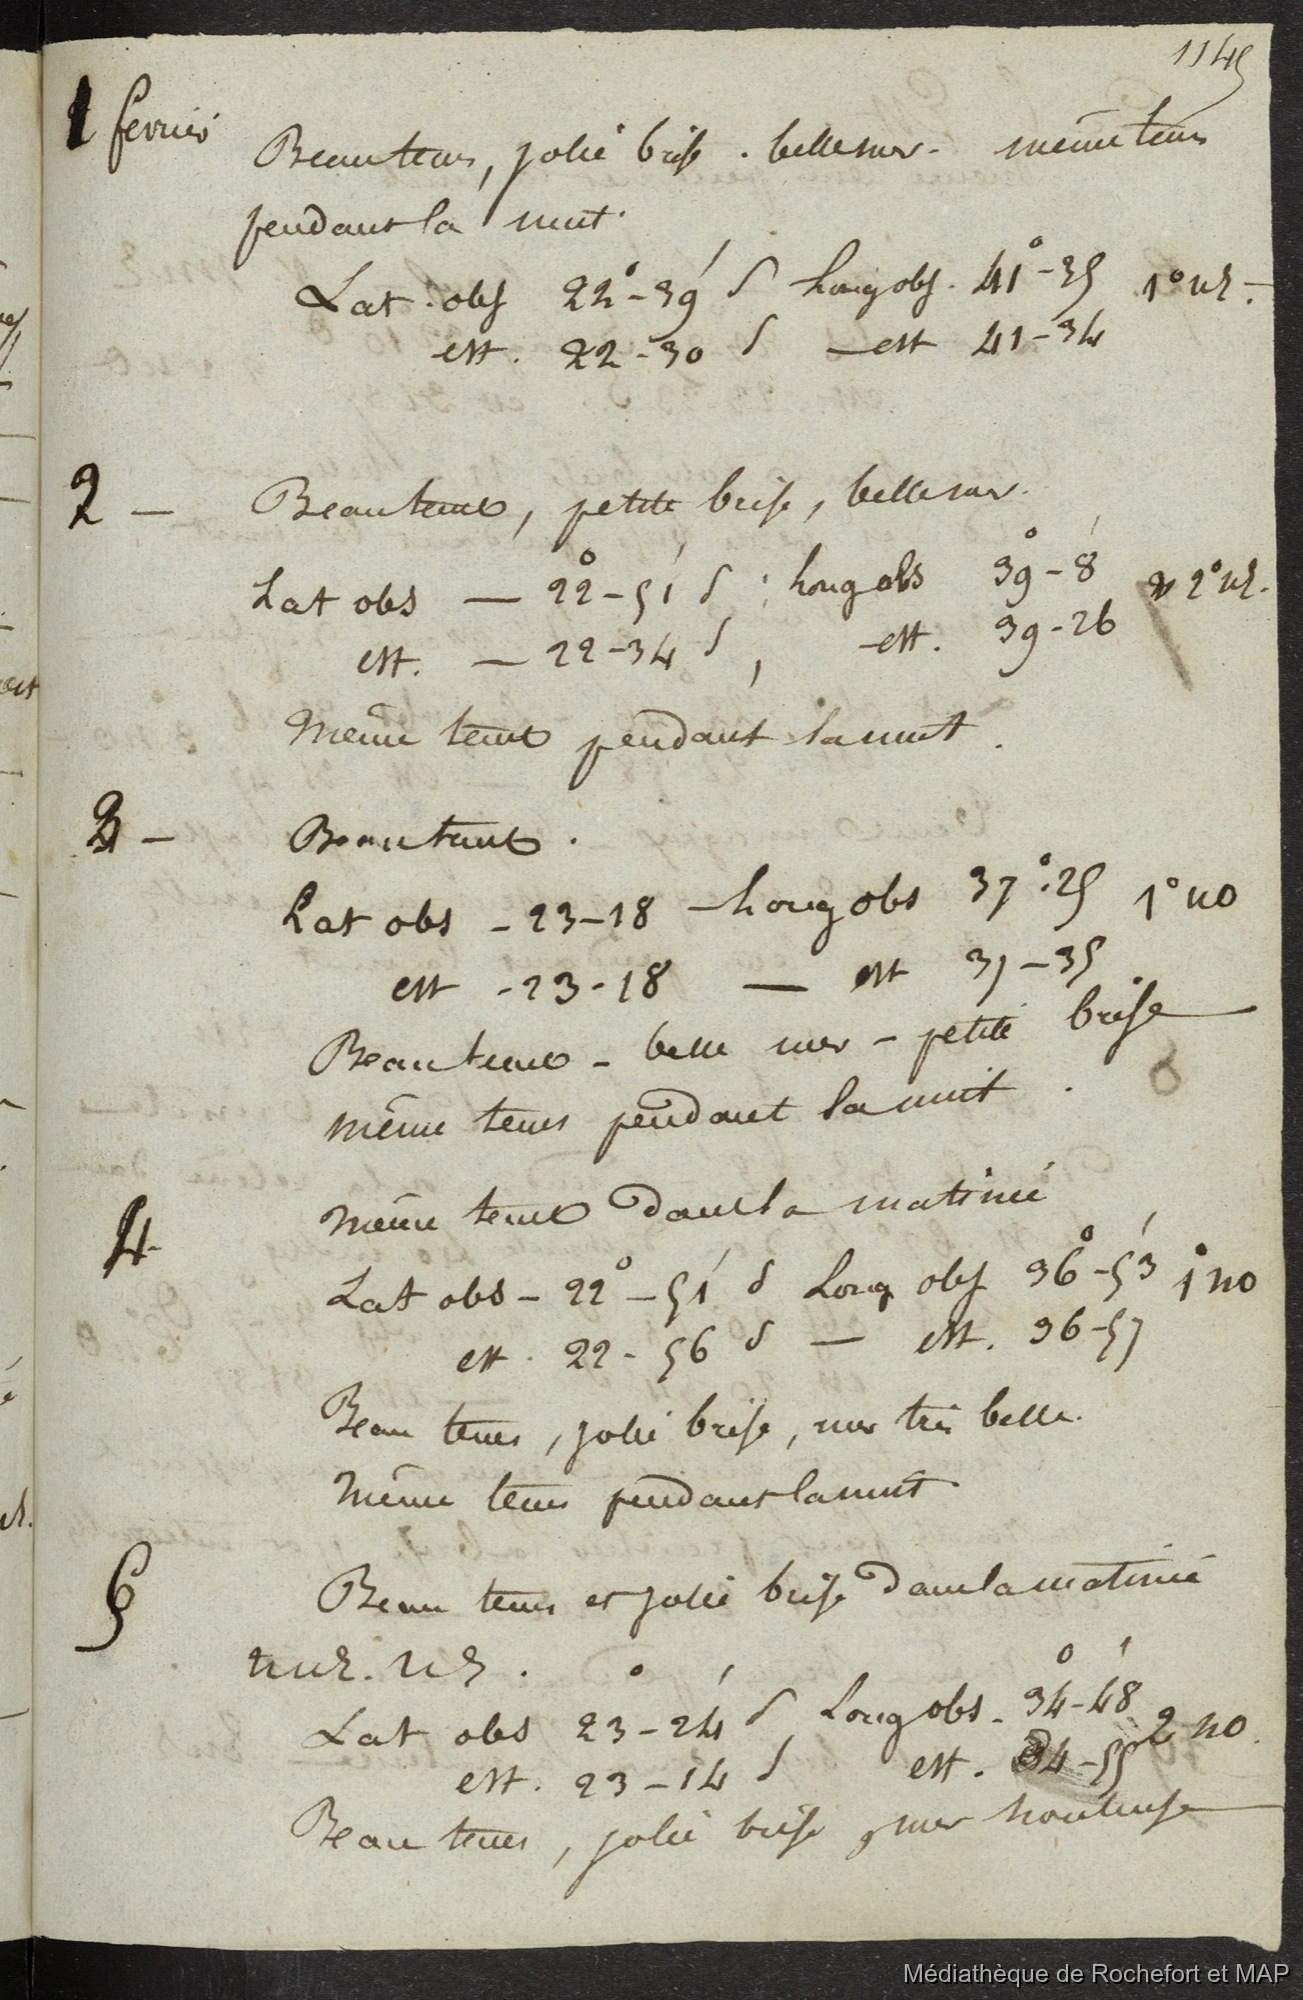 1145
1 fevrier
Beau tems, jolie brise. belle mer. même tems
pendant la nuit.
Lat. obs 22°-39' S Long obs. 41°-35 1° NE.
est. 22-30 S — est 41-34
2 — Beau tems, petite brise, belle mer.
Lat obs — 22°-51' S, Long obs 39°-8' 2° NE.
est. — 22-34 S, — est. 39-26
Même tems pendant la nuit.
3 — Beau tems.
Lat obs - 23-18 — Long obs 37°.25 1° NO
est - 23-18 — est 37-35
Beau tems - belle mer - petite brise
même tems pendant la nuit.
4 - même tems dans la matinée
Lat obs - 22°-51' S Long obs 36°-53' 1° NO
est. 22-56 S — est. 36-57
Beau tems, jolie brise, mer très belle.
Même tems pendant la nuit
5 Beau tems et jolie brise dans la matinée
NNE. NE.
Lat obs 23°-24' S, Long obs. 34°-48' 2 NO.
est. 23-14 S est. 34-55
Beau tems, jolie brise, mer houleuse
Médiathèque de Rochefort et MAP